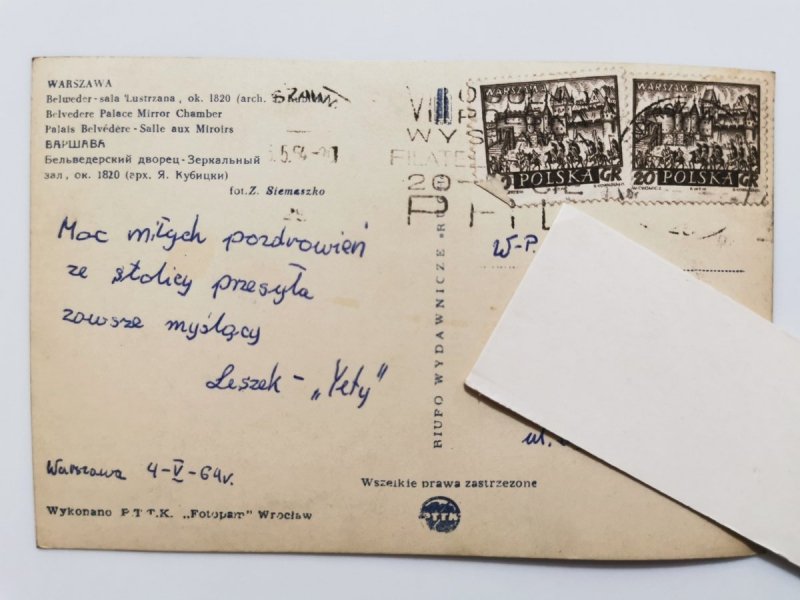 WARSZAWA
Belweder-sala Lustrzana, ok. 1820 (arch.
Belvedere Palace Mirror Chamber
Palais Belvédère - Salle aux Miroirs
ВАРШАВА
Бельведерский дворец - Зеркальный
зал, ок. 1820 (арх. Я. Кубицки)
fot. Z. Siemaszko
Moc miłych pozdrowień
ze stolicy przesyła
zawsze myślący
Leszek - „Yety"
Warszawa 4-V-64r.
Wykonano P.T.T.K. „Fotopam" Wrocław
BIURO WYDAWNICZE
Wszelkie prawa zastrzeżone
PTTK
WARSZAWA
POLSKA GR
WARSZAWA
20 POLSKA GR
VIII
WY
FILATE
20
W-P.
ul.